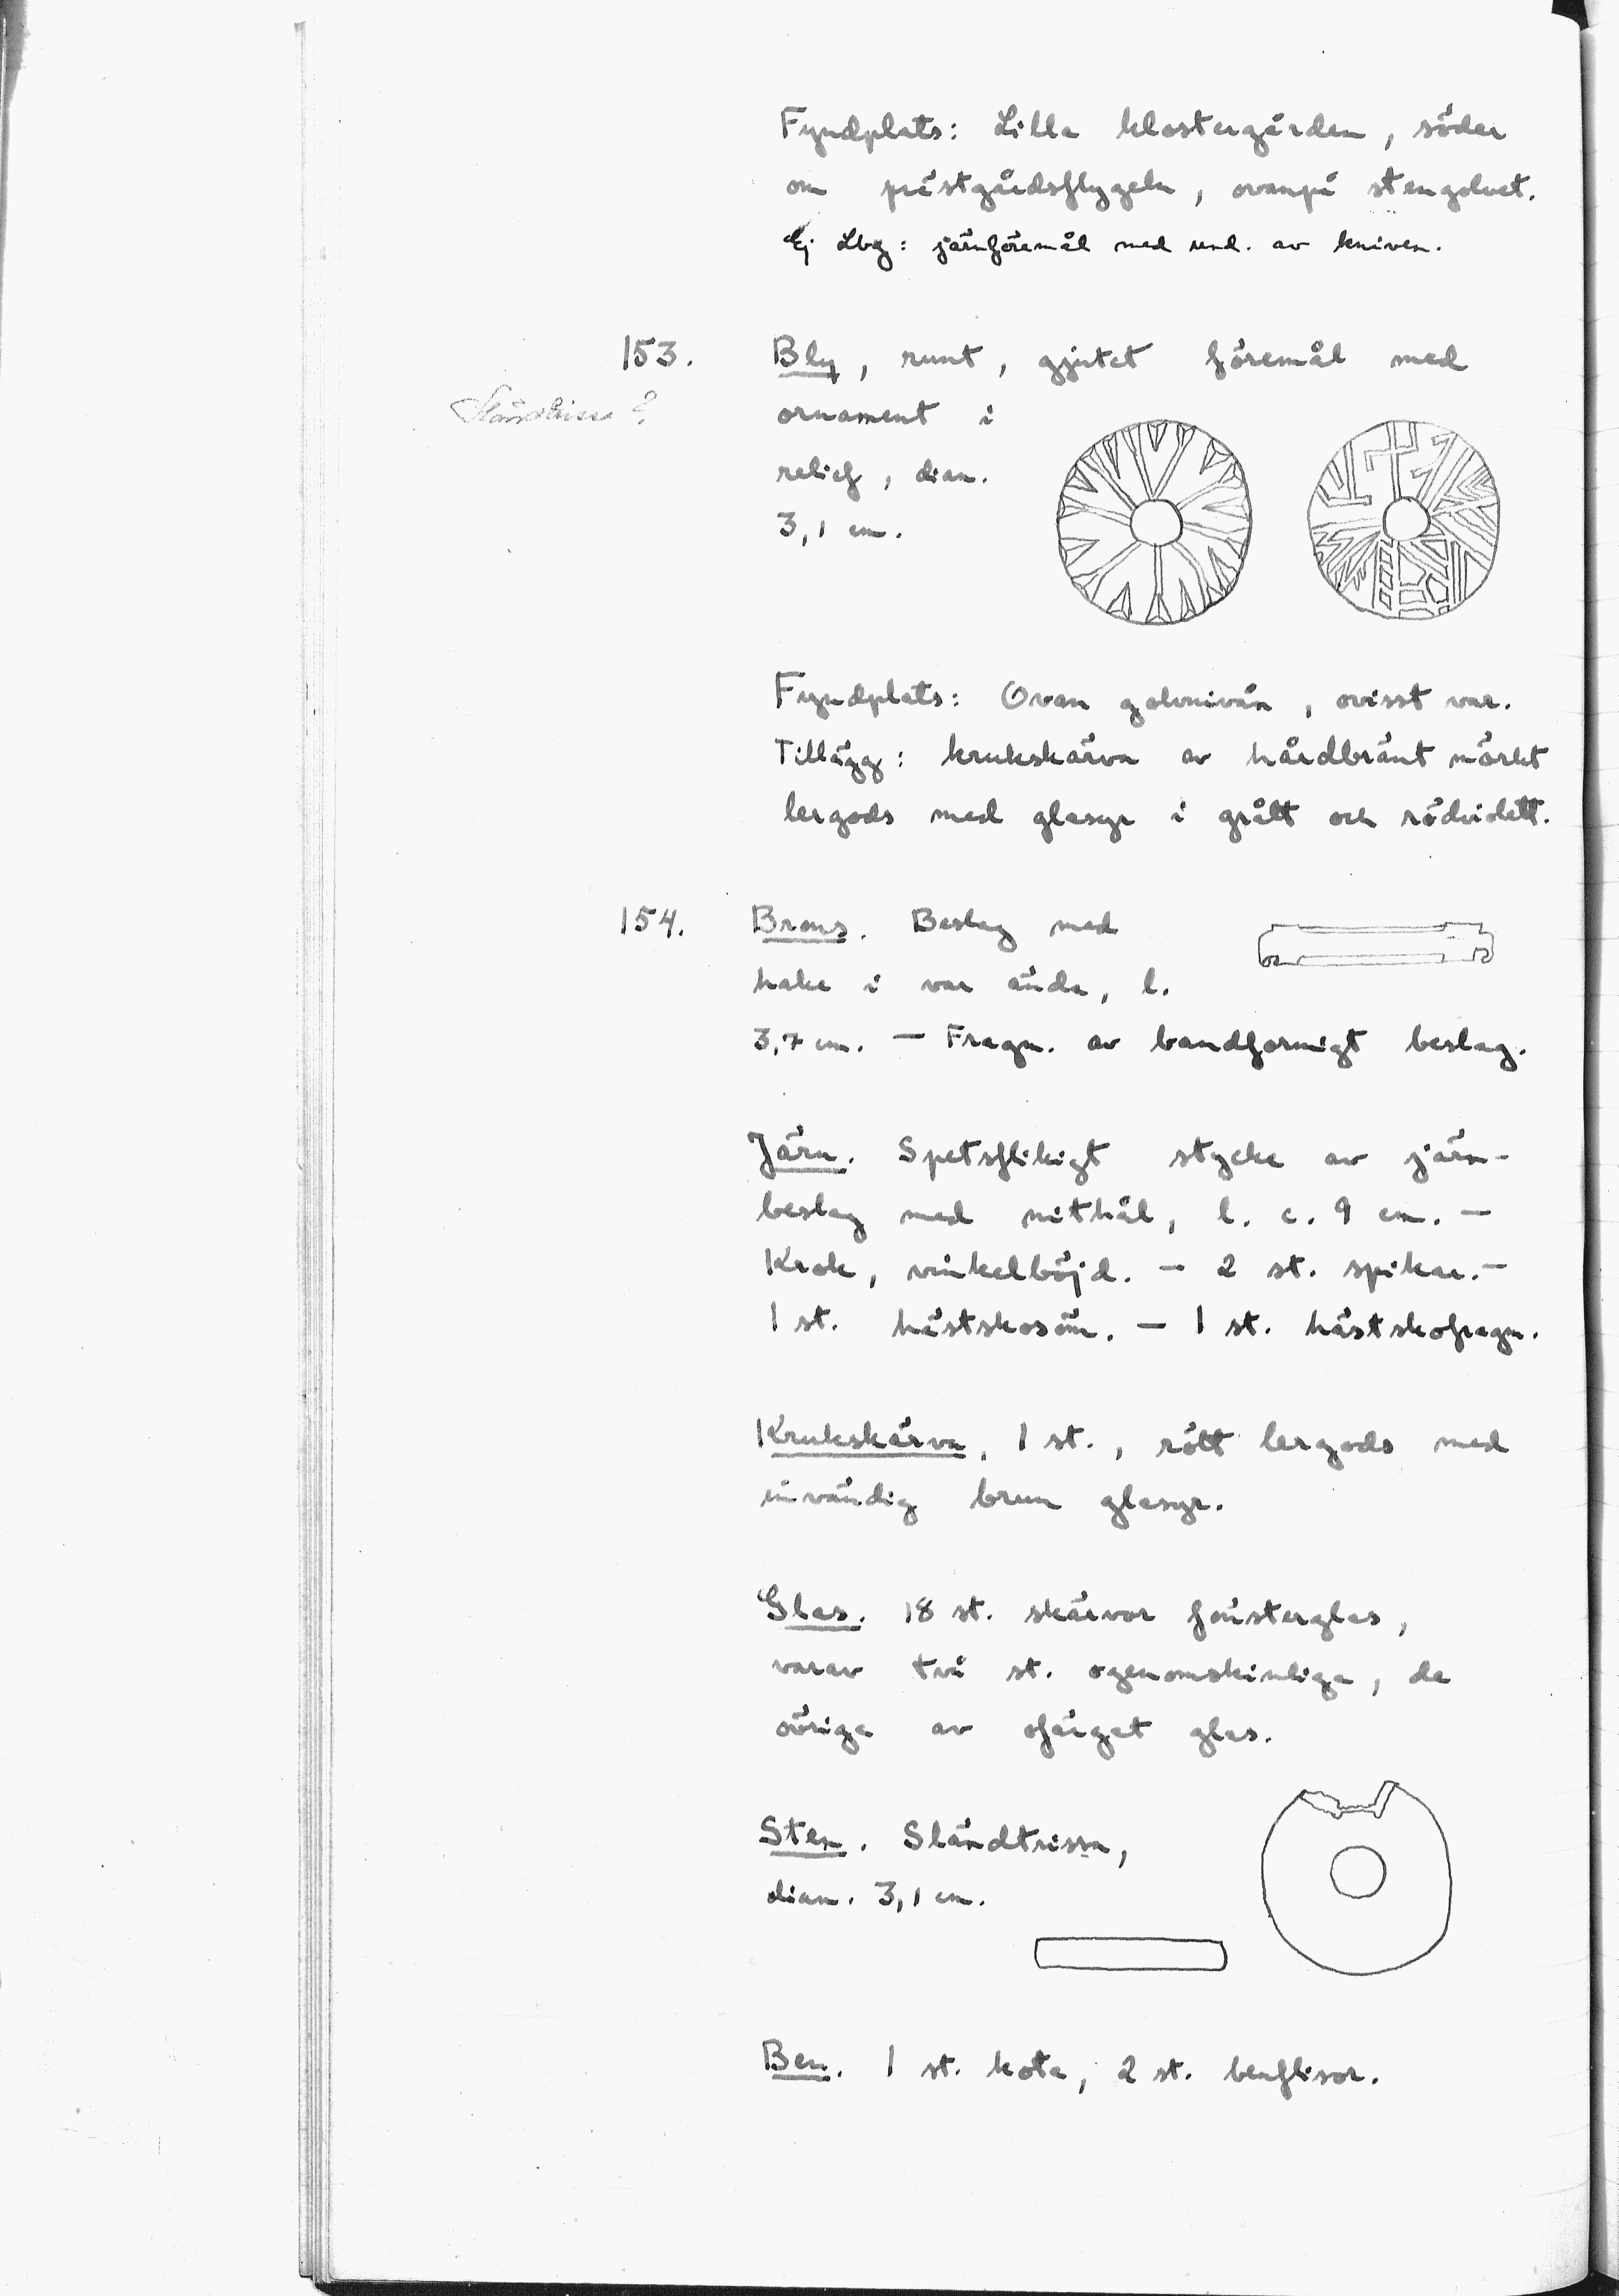 Fyndplats: Lilla klostergården, söder
om prästgårdsflygeln, ovanpå stengolvet.
Ej Lbg: järnföremål med und. av kniven.
153. Bly, runt, gjutet föremål med
ornament i
relief, diam.
3,1 cm.
Fyndplats: Ovan golvnivån, ovisst var.
Tillägg: krukskärva av hårdbränt mörkt
lergods med glasyr i grått och rödviolett.
154. Brons. Beslag med
hake i var ända, l.
3,7 cm. — Fragm. av bandformigt beslag.
Järn. Spetsflikigt stycke av järn-
beslag med nithål, l. c. 9 cm. —
Krok, vinkelböjd. — 2 st. spikar. —
1 st. hästskosöm. — 1 st. hästskofragm.
Krukskärva, 1 st., rött lergods med
invändig brun glasyr.
Glas. 18 st. skärvor fönsterglas,
varav två st. ogenomskinliga, de
övriga av ofärgat glas.
Sten. Sländtrissa,
diam. 3,1 cm.
Ben. 1 st. kota, 2 st. benflisor.